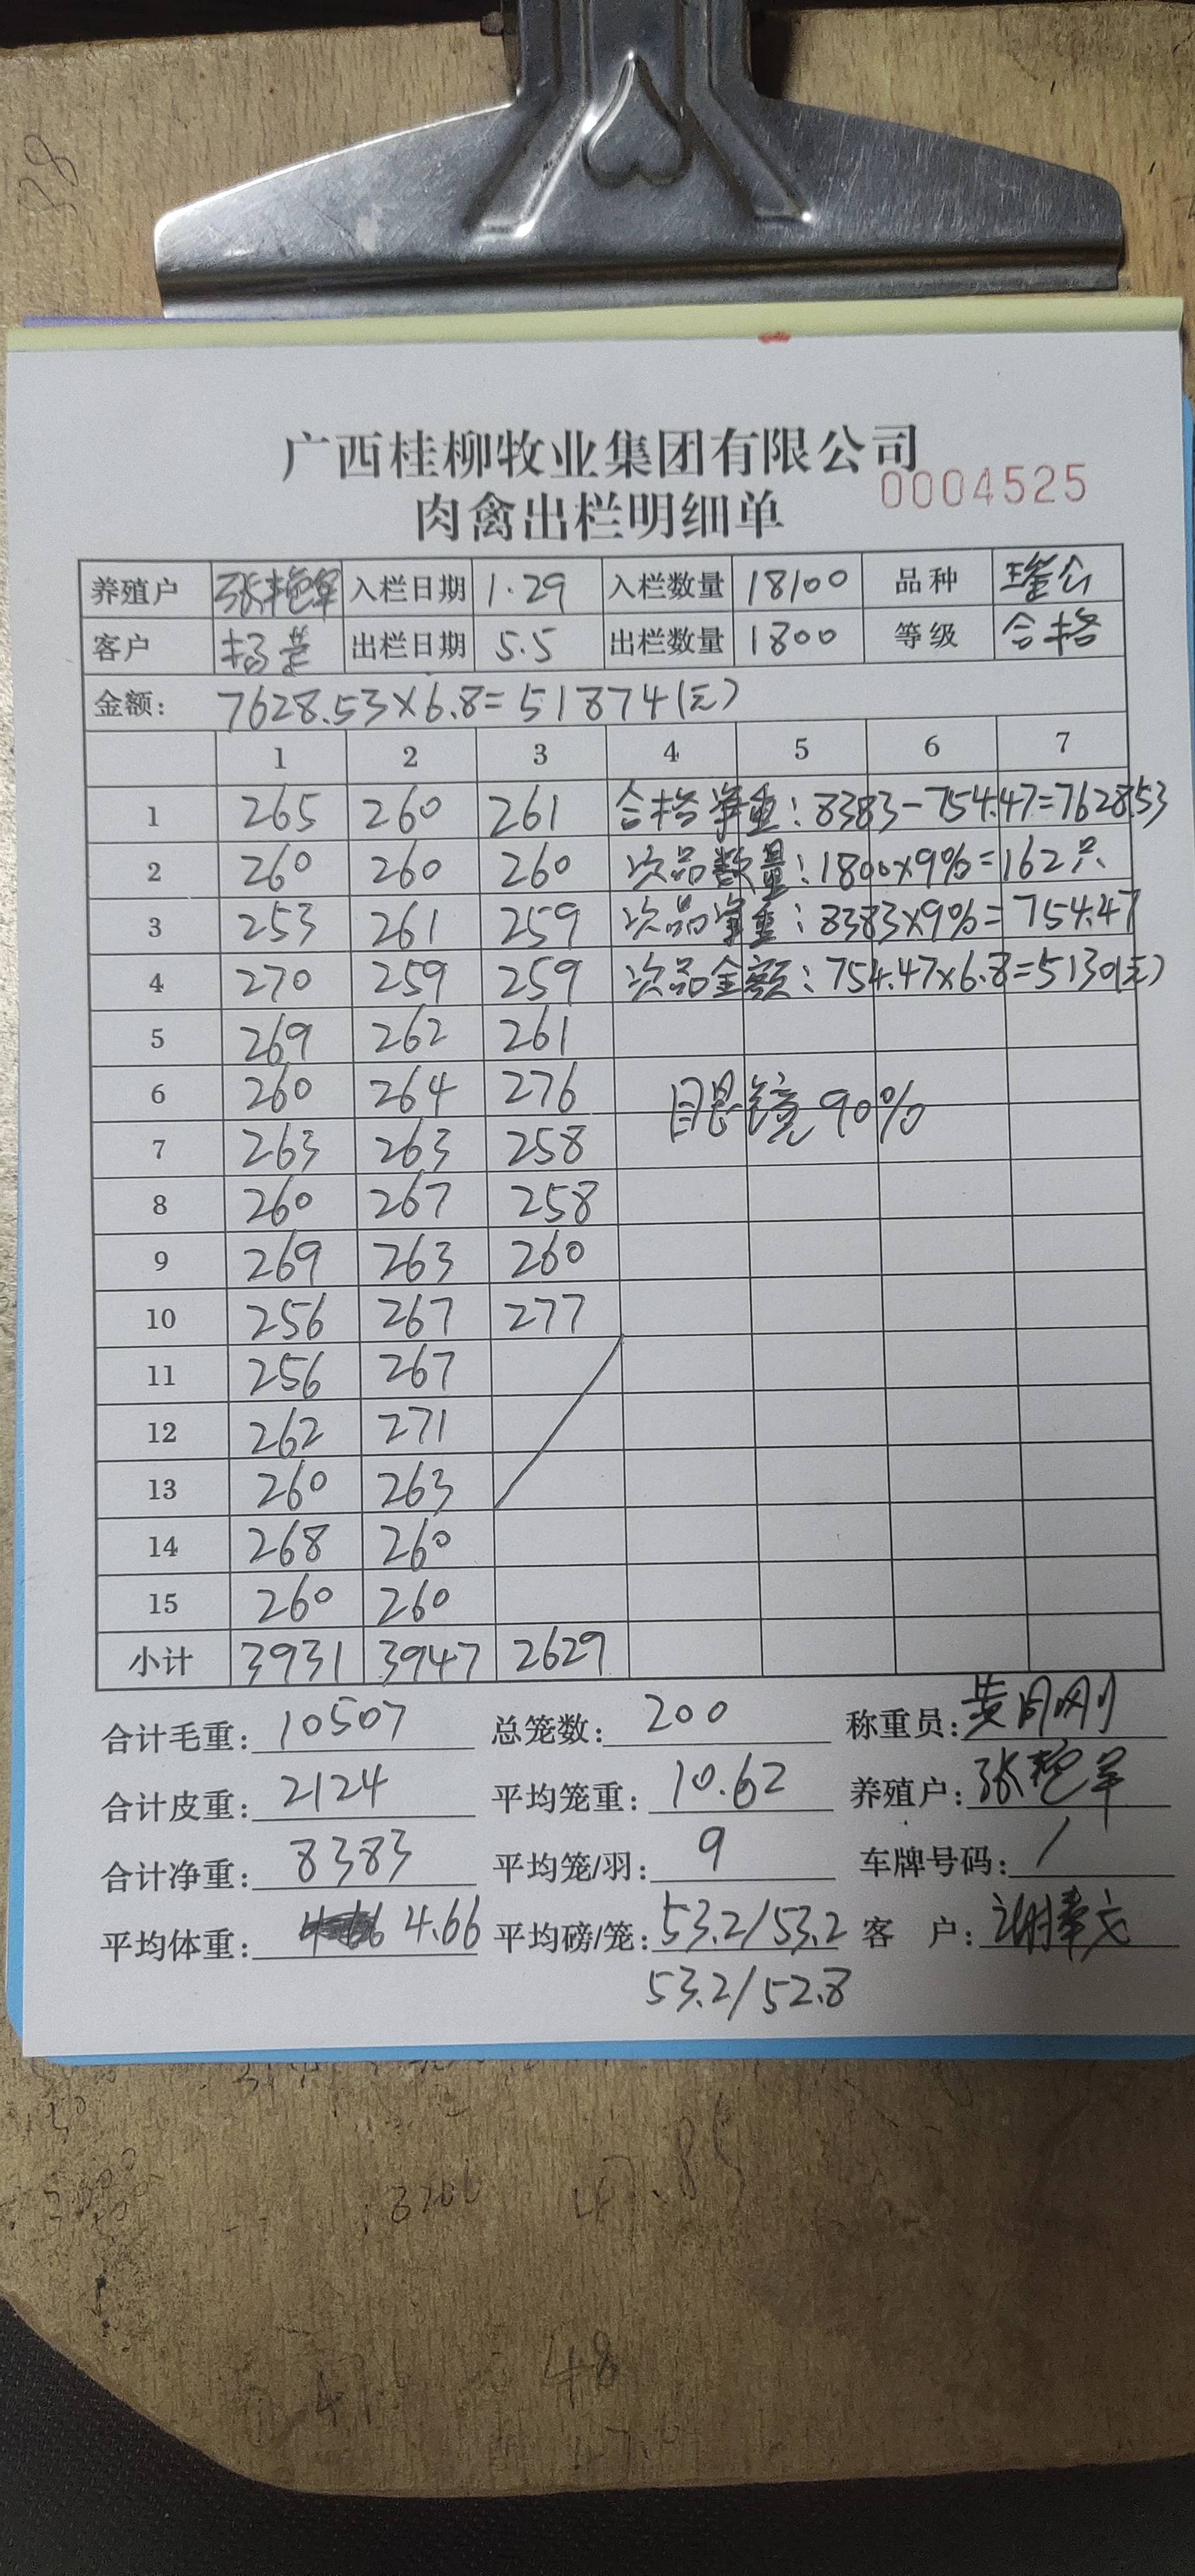 广西桂柳牧业集团有限公司
肉禽出栏明细单 0004525
养殖户 张艳军 入栏日期 1.29 入栏数量 18100 品种 瑶公
客户 出栏日期 5.5 出栏数量 1800 等级 合格
金额: 7628.53×6.8=51874(元)
1 2 3 4 5 6 7
1 265 260 261 合格净重:8383-754.47=7628.53
2 260 260 260 次品数量:1800×9%=162只
3 253 261 259 次品净重:8383×9%=754.47
4 270 259 259 次品金额:754.47×6.8=5130(元)
5 269 262 261
6 260 264 276 眼镜90%
7 263 263 258
8 260 267 258
9 269 263 260
10 256 267 277
11 256 267
12 262 271
13 260 263
14 268 260
15 260 260
小计 3931 3947 2629
合计毛重: 10507 总笼数: 200 称重员:
合计皮重: 2124 平均笼重: 10.62 养殖户: 张艳军
合计净重: 8383 平均笼/羽: 9 车牌号码: /
平均体重: 4.66 平均磅/笼: 53.2/53.2 客 户:
53.2/52.8
48